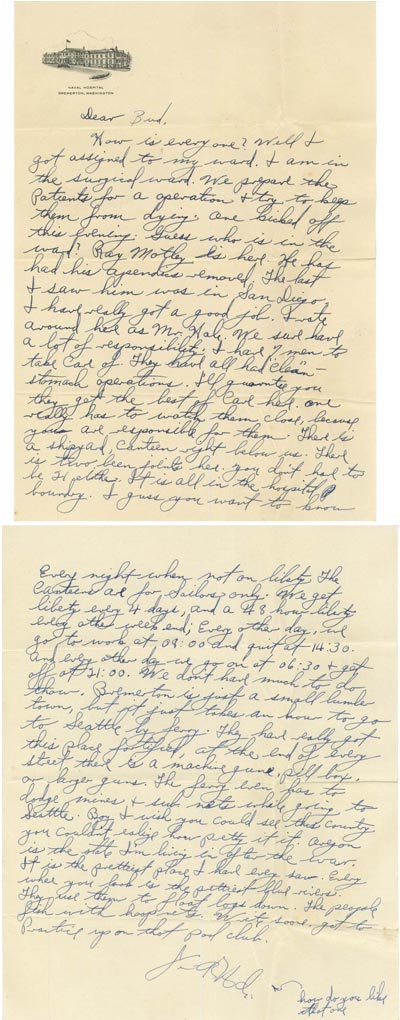 NAVAL HOSPITAL
BREMERTON, WASHINGTON
Dear Bud,
How is everyone? Well I
got assigned to my ward. I am in
the surgical ward. We prepare the
Patients for a operation & try to keep
them from dying. one kicked off
this evening. Guess who is in the
ward? Ray Motley Is here. He has
had his apendics removed. The last
I saw him was in San Diego,
I have really got a good job. I rate
around here as Mr. Hale. We sure have
a lot of responsibility. I have 7 men to
take Care of. They have all had "clean"
stomach operations. I'll guarntee you
they get the best of Care here. one
really has to watch them close, because
you are responsible for them. There is
a shipyard, Canteen right below us. There
is two beer joints here. you don't have to
be 21 either. It is all in the hospital
boundry. I guess you want to know
Every night when not on liberty The
Canteens are for Sailors only. We get
liberty every 4 days, and a 48 hour liberty
every other week end; Every other day, we
go to work at 08:00 and quit at 14:30.
And every other day we go on at 06:30 & get
off at 21:00. We don't have much to do
thow. Bremerton is just a small lumber
town, but it just takes an hour to go
to Seattle by ferry. They have really got
this place fortified, at the end of every
street there is a machine gune, pill box,
or larger guns. The ferry even has to
dodge mines & sub nets while going to
Seattle. Boy I wish you could see this country
you couldn't realize how pretty it is. Oregon
is the state I'm living in after the war.
It is the prettiest place I have ever saw. Every
where you look is the prettiest blue rivers.
They use them to float logs down. The people
fish with hoop nets. Write soon. got to
Practice up on that pool club.
how do you like
that one